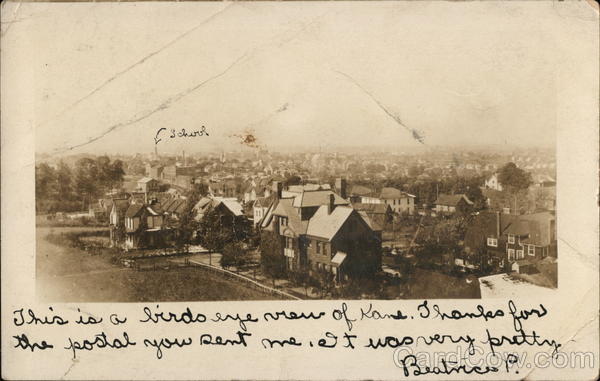 School
This is a birds eye view of Kane. Thanks for
the postal you sent me. It was very pretty.
Beatrice P.
CardCow.com